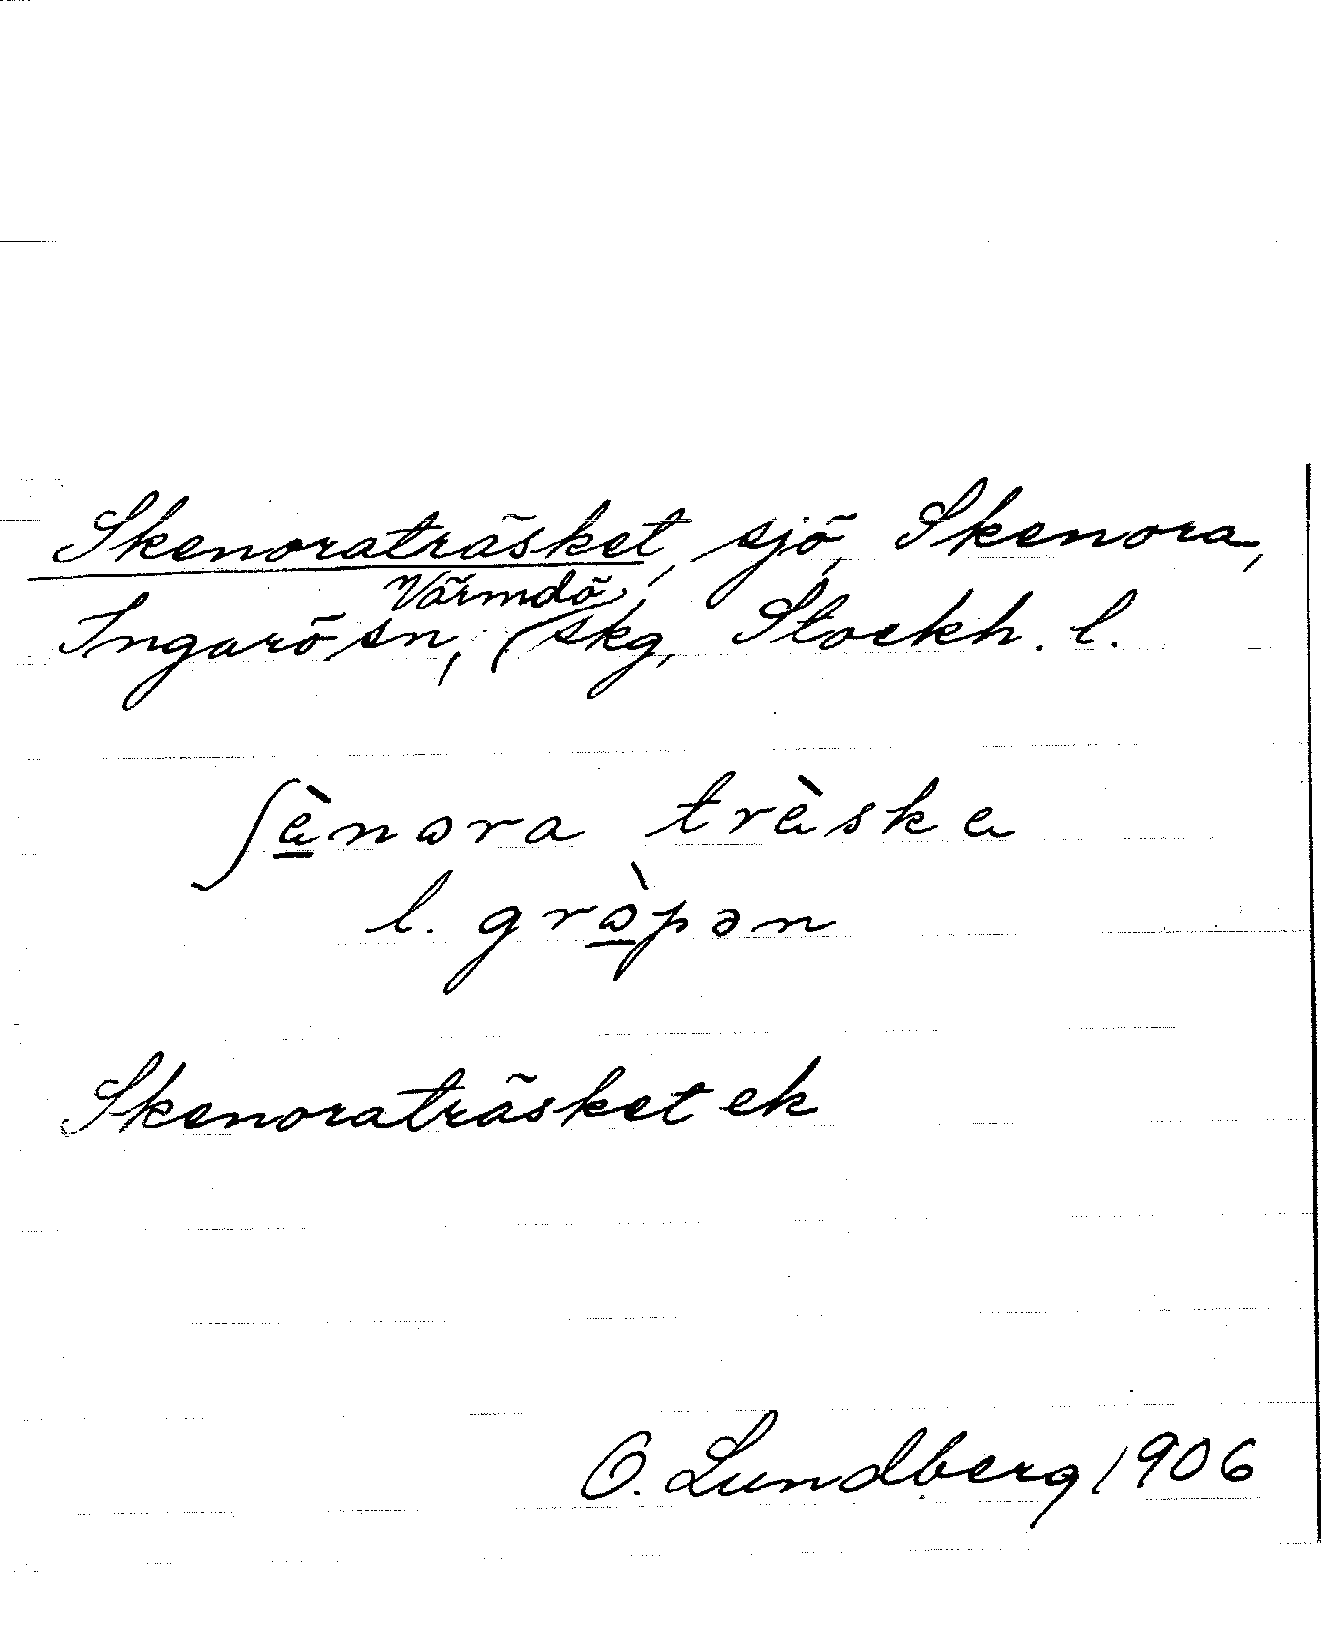 Skenoraträsket, sjö, Skenora,
Ingarö sn, Värmdö skg, Stockh. l.
ʃènꙍra trèske
l. grꙍ̀pən
Skenoraträsket ek
O. Lundberg 1906